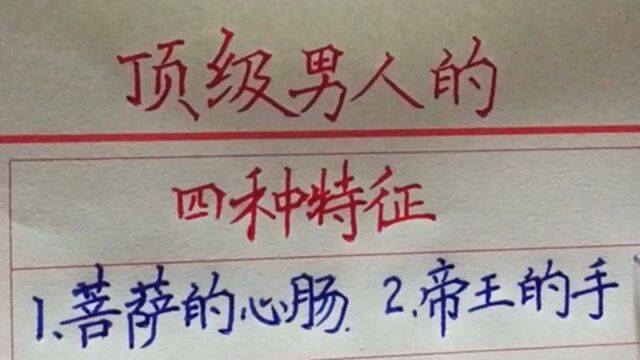 顶级男人的
四种特征
1.菩萨的心肠. 2.帝王的手